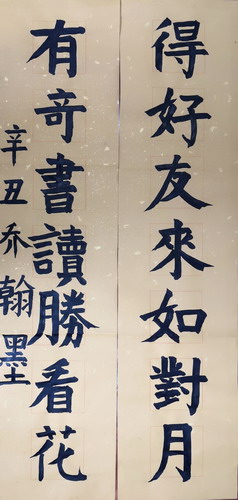 得好友來如對月
有奇書讀勝看花
辛丑乔翰墨